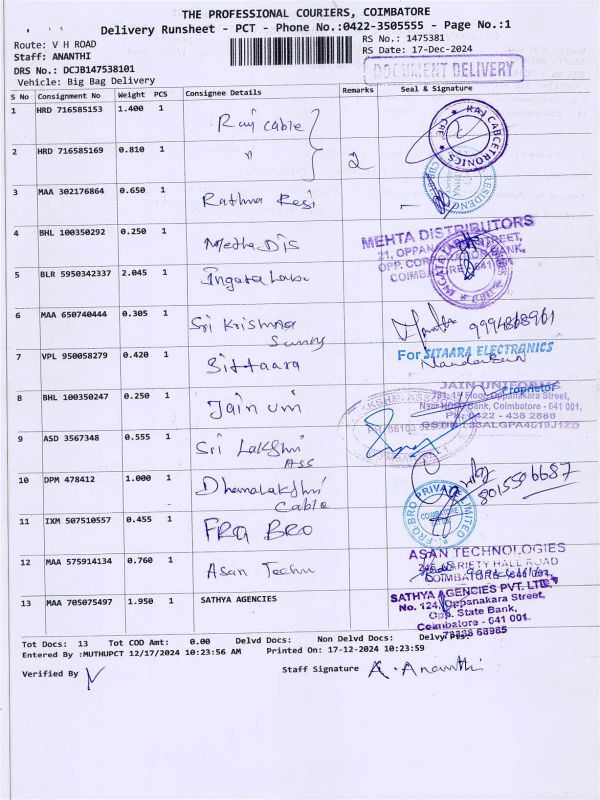 THE PROFESSIONAL COURIERS, COIMBATORE
Delivery Runsheet - PCT - Phone No.:0422-3505555 - Page No.:1
Route: V H ROAD RS No.: 1475381
Staff: ANANTHI RS Date: 17-Dec-2024
DRS No.: DCJB147538101
Vehicle: Big Bag Delivery
DOCUMENT DELIVERY
S No Consignment No Weight PCS Consignee Details Remarks Seal & Signature
1 HRD 716585153 1.400 1 Raj Cable RAJ CABCETRONICS CBE
2 HRD 716585169 0.810 1 " 2
3 MAA 302176864 0.650 1 Rathna Resi
4 BHL 100350292 0.250 1 Metha Dis MEHTA DISTRIBUTORS
5 BLR 5950342337 2.045 1
6 MAA 650740444 0.305 1 Sri Krishna
7 VPL 950058279 0.420 1 Sittaara For SITAARA ELECTRONICS
Proprietor
8 BHL 100350247 0.250 1 Jain uni JAIN UNIFORMS
Oppanakara Street,
Bank, Coimbatore - 641 001,
0422 - 438 2886
9 ASD 3567348 0.555 1 Sri Lakshmi
Ass
10 DPM 478412 1.000 1 Dhanalakshmi 8015506687
Cable
11 IXM 507510557 0.455 1 FRQ BRO FRQ BRO PRIVATE LIMITED COIMBATORE
12 MAA 575914134 0.760 1 Asan Techn ASAN TECHNOLOGIES
VARIETY HALL ROAD
COIMBATORE
13 MAA 705075497 1.950 1 SATHYA AGENCIES SATHYA AGENCIES PVT. LTD.,
No. 124, Oppanakara Street,
Opp. State Bank,
Coimbatore - 641 001.
68985
Tot Docs: 13 Tot COD Amt: 0.00 Delvd Docs: Non Delvd Docs:
Entered By :MUTHUPCT 12/17/2024 10:23:56 AM Printed On: 17-12-2024 10:23:59
Verified By Staff Signature A. Ananthi